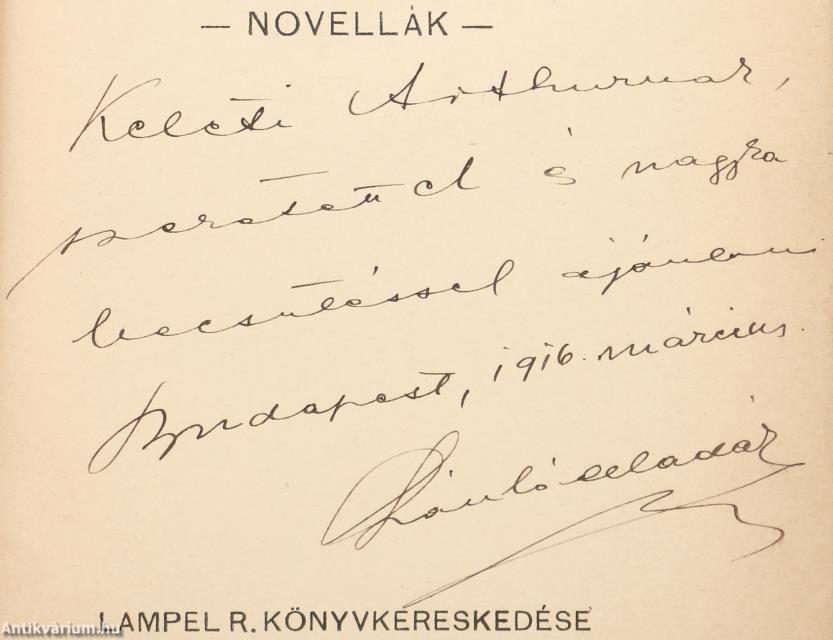 — NOVELLÁK —
Keleti Arthurnak,
szeretettel és nagyra
becsüléssel ajánlom
Budapest, 1916. március.
aladár
LAMPEL R. KÖNYVKERESKEDÉSE
Antikvárium.hu